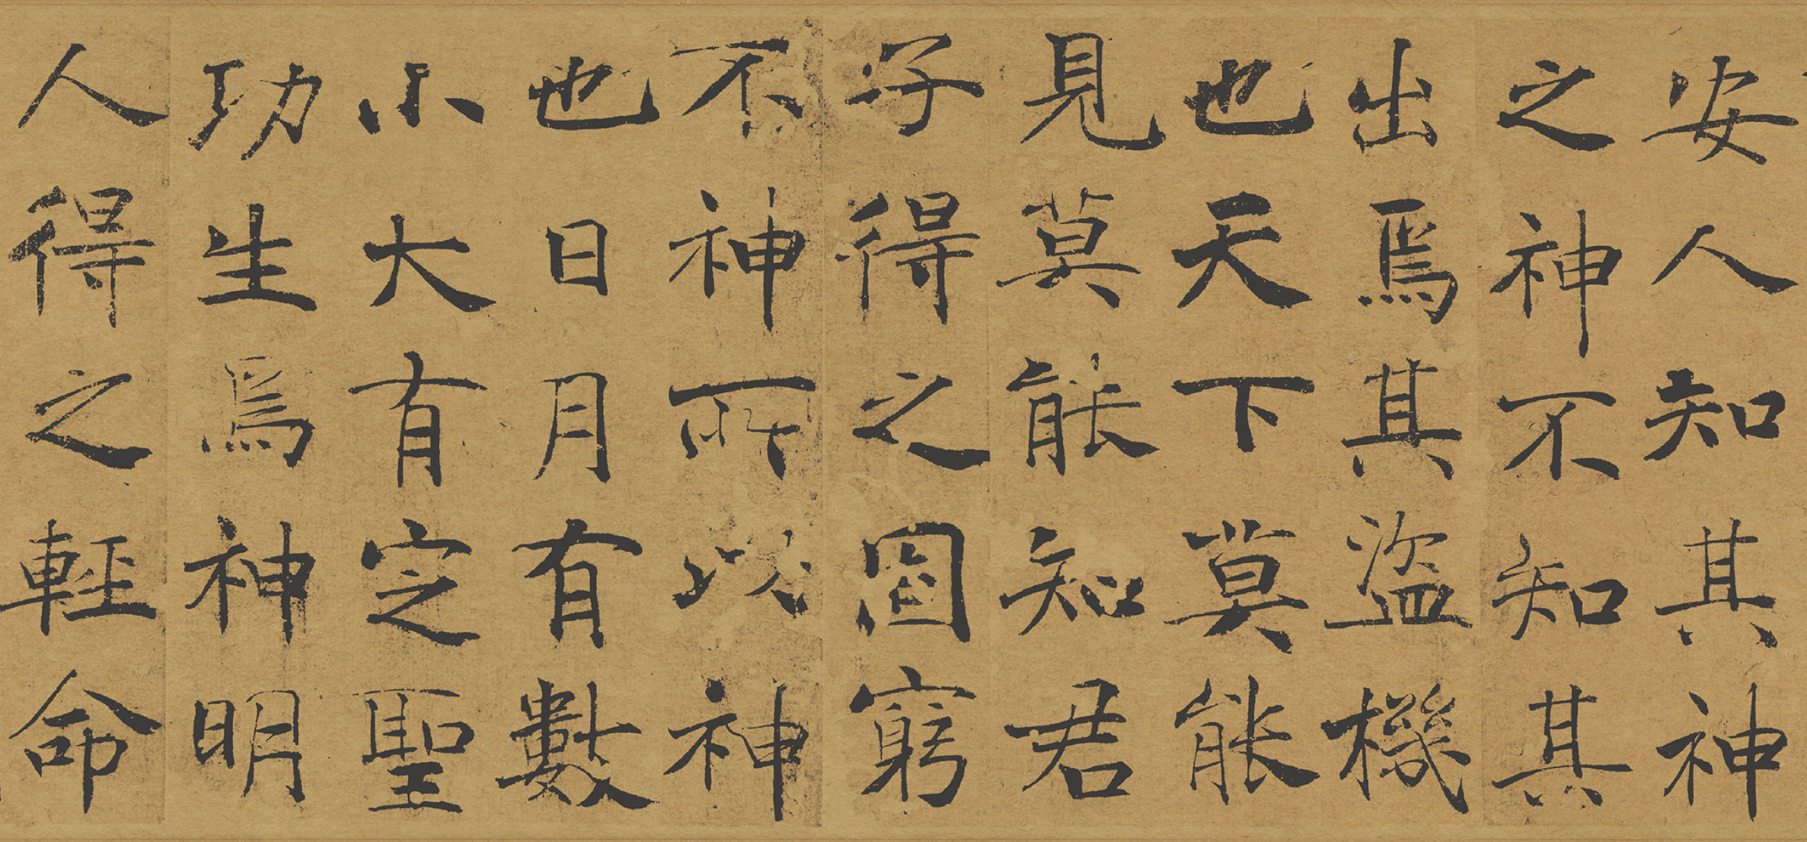 安人知其神
之神不知其
出焉其盜機
也天下莫能
見莫能知君
子得之固窮
不神所以神
也日月有數
小大有定聖
功生焉神明
人得之輕命